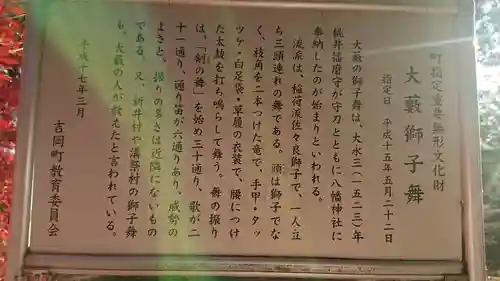 町指定重要無形文化財
大藪獅子舞
指定日 平成十五年五月二十二日
大藪の獅子舞は、大永三(一五二三)年
桃井播磨守が守刀とともに八幡神社に
奉納したのが始まりといわれる。
流派は、稲荷流佐々良獅子で、一人立
ち三頭連れの舞である。頭は獅子でな
く、枝角を二本つけた竜で、手甲・タッ
ツケ・白足袋・草履の衣装で、腰につけ
た太鼓を打ち鳴らして舞う。舞の振り
は、「剣の舞」を始め三十通り、歌が二
十一通り、通り笛が六通りあり、威勢の
よさと、振りの多さは近隣にないもの
である。又、新井村や湯祭村の獅子舞
も、大藪の人が教えたと言われている。
平成十七年三月
吉岡町教育委員会